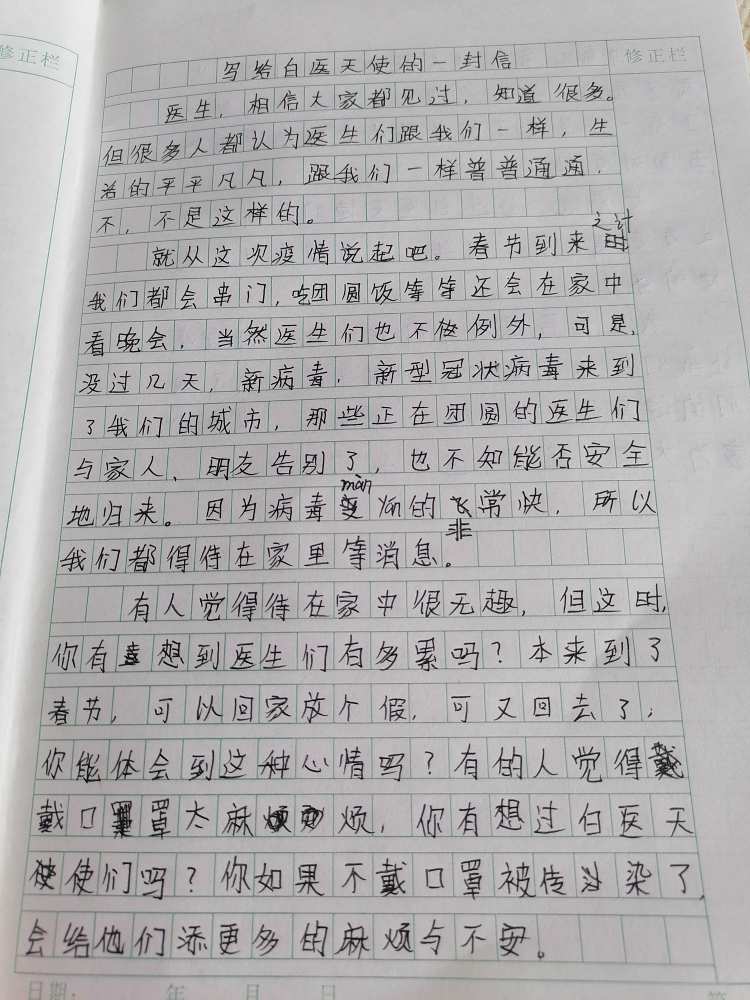 修正栏
修正栏
写给白医天使的一封信
医生，相信大家都见过，知道很多。
但很多人都认为医生们跟我们一样，生
活的平平凡凡，跟我们一样普普通通，
不，不是这样的。
就从这次疫情说起吧。春节到来之计
我们都会串门，吃团圆饭等等还会在家中
看晚会，当然医生们也不例外，可是，
没过几天，新病毒，新型冠状病毒来到
了我们的城市，那些正在团圆的医生们
与家人、朋友告别了，也不知能否安全
地归来。因为病毒màn 延的非常快，所以
我们都得待在家里等消息。
有人觉得待在家中很无趣，但这时，
你有想到医生们有多累吗？本来到了
春节，可以回家放个假，可又回去了，
你能体会到这种心情吗？有的人觉得
戴口罩太麻烦，你有想过白医天
使们吗？你如果不戴口罩被传染了，
会给他们添更多的麻烦与不安。
日期： 年 月 日 第